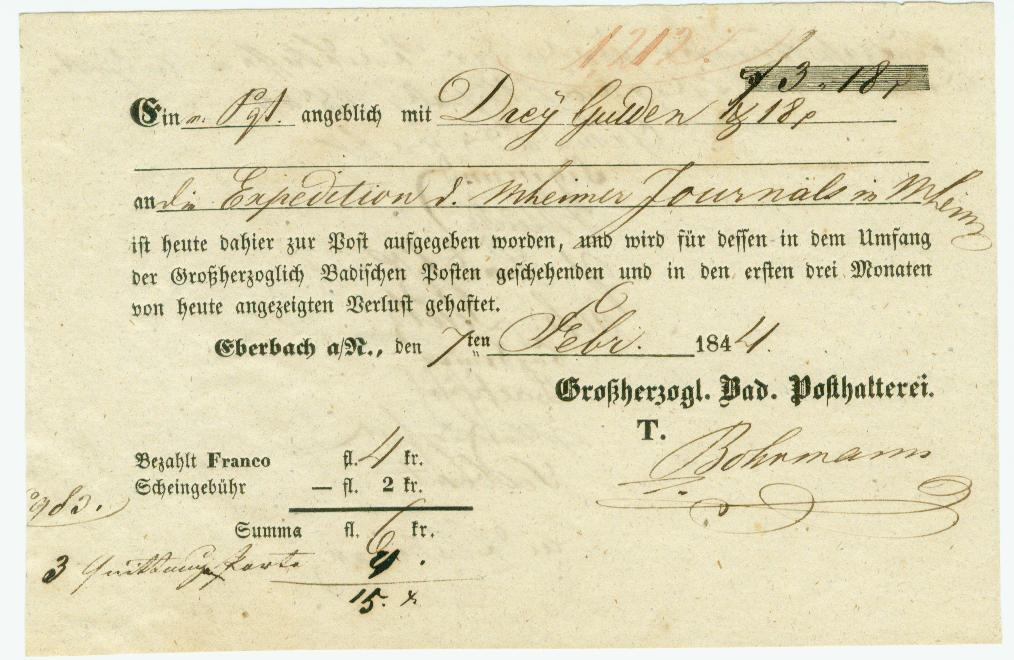 1212.
f 3 „ 18 x
Ein Pqt. angeblich mit Dreÿ Gulden 18 x
an die Expedition d. Mheimer Journals in Mheim
ist heute dahier zur Post aufgegeben worden, und wird für dessen in dem Umfang
der Großherzoglich Badischen Posten geschehenden und in den ersten drei Monaten
von heute angezeigten Verlust gehaftet.
Eberbach a/N., den 7ten Febr. 1844.
Großherzogl. Bad. Posthalterei.
T.
Bohrmann
Bezahlt Franco fl. 4 kr.
Scheingebühr — fl. 2 kr.
Summa fl. 6 kr.
3 Quittung Porto 9.
15. x